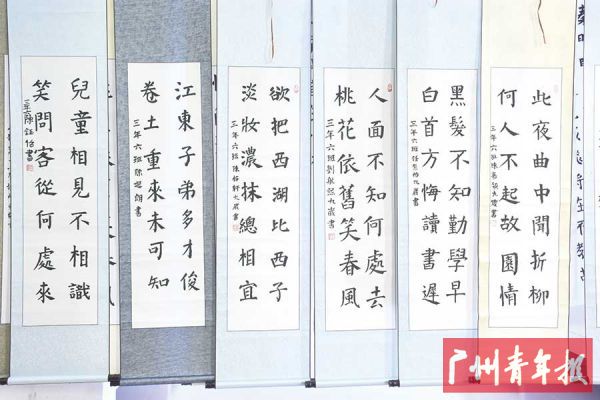 此夜曲中聞折柳
何人不起故園情
三年六班
黑髮不知勤學早
白首方悔讀書遲
三年六班
人面不知何處去
桃花依舊笑春風
三年六班劉 九歲書
欲把西湖比西子
淡妝濃抹總相宜
三年六班陳 軒九歲書
江東子弟多才俊
卷土重來未可知
三年六班陳 朗書
兒童相見不相識
笑問客從何處來
书
广州青年报